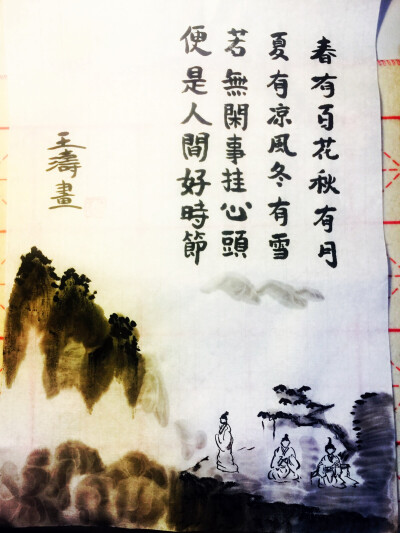 春有百花秋有月
夏有凉風冬有雪
若無閑事挂心頭
便是人間好時節
王濤畫